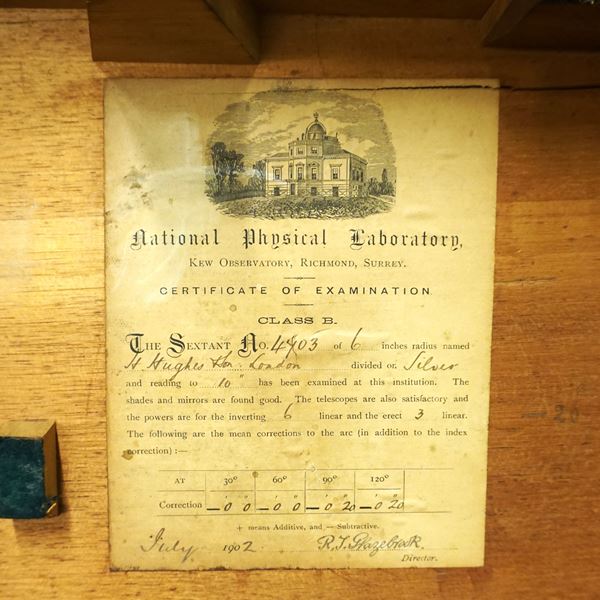 National Physical Laboratory,
KEW OBSERVATORY, RICHMOND, SURREY.
CERTIFICATE OF EXAMINATION
CLASS B.
THE SEXTANT NO. 4703 of 6 inches radius named
H. Hughes & Son. London divided on Silver
and reading to 10" has been examined at this institution. The
shades and mirrors are found good. The telescopes are also satisfactory and
the powers are for the inverting 6 linear and the erect 3 linear.
The following are the mean corrections to the arc (in addition to the index
correction) :—
AT 30° 60° 90° 120°
Correction —0' 0" —0' 0" —0' 20" —0' 20"
+ means Additive, and — Subtractive.
July 1902 R.T. Glazebrook.
Director.
— 20